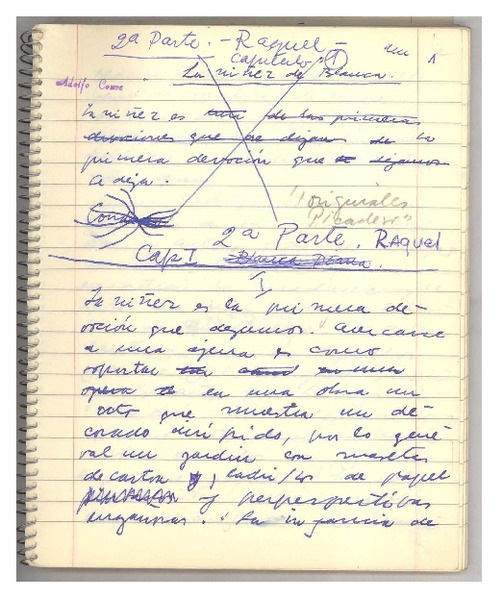 2ª Parte. - Raquel -
Capítulo I
1
La niñez de Blanca.
Adolfo Couve
La niñez es de las primeras
devociones que se dejan de lo
primera devoción que dejamos
Originales
"Picadero"
2ª Parte. Raquel
Cap I Blanca Diana.
I
La niñez es la primera de-
voción que dejamos. Acercarse
a una ajena es como
soportar
en una obra un
acto que muestra un de-
corado insípido, por lo gene-
ral un jardín con maceteros
de cartón, ladrillos de papel
y perperspectivas
engañosas. La infancia de